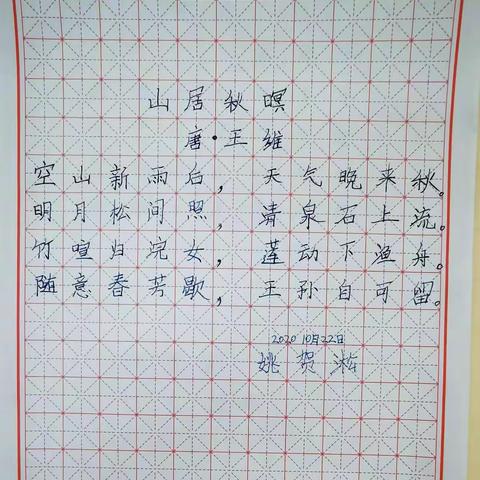 山居秋暝
唐·王维
空山新雨后，天气晚来秋。
明月松间照，清泉石上流。
竹喧归浣女，莲动下渔舟。
随意春芳歇，王孙自可留。
2020 10月22日
姚贺淞